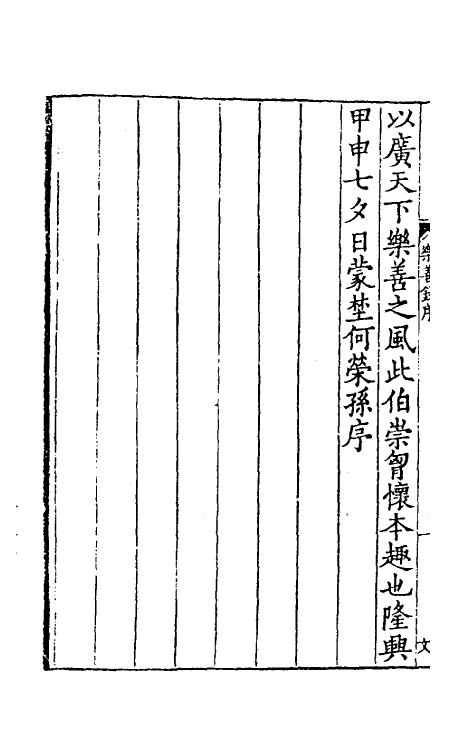 以廣天下樂善之風此伯崇胷懷本趣也隆興
甲申七夕日蒙埜何榮孫序
樂善錄序
一
文